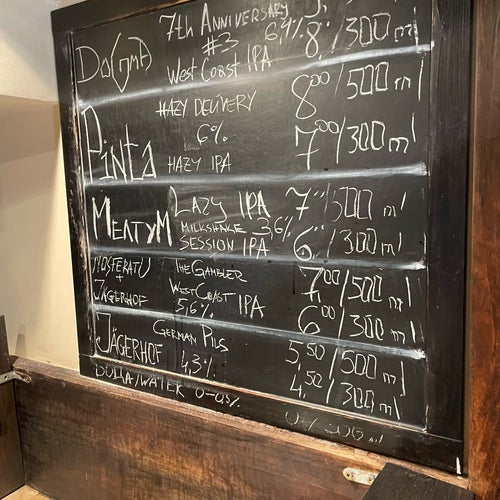 DOGMA 7th ANNIVERSARY 6,4%
#3 8, /300 ml
WEST COAST IPA
HAZY DELIVERY 8,00/500 ml
PINTA 6% 7,00/300 ml
HAZY IPA
MEATYM LAZY IPA 7,"/500 ml
MILKSHAKE 3,6%
SESSION IPA 6,"/300 ml
NOSFERATU THE GAMBLER 7,00/500 ml
+ WEST COAST IPA
JÄGERHOF 5,6% 6,00/300 ml
JÄGERHOF GERMAN PILS 5,50/500 ml
4,3% 4,50/300 ml
0-0,5%